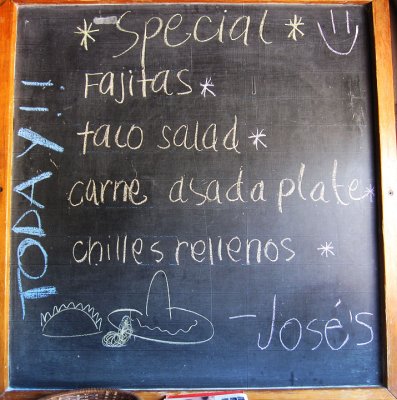 * Special *
TODAY!!
Fajitas *
taco salad *
carne asada plate *
chilles rellenos *
- José's